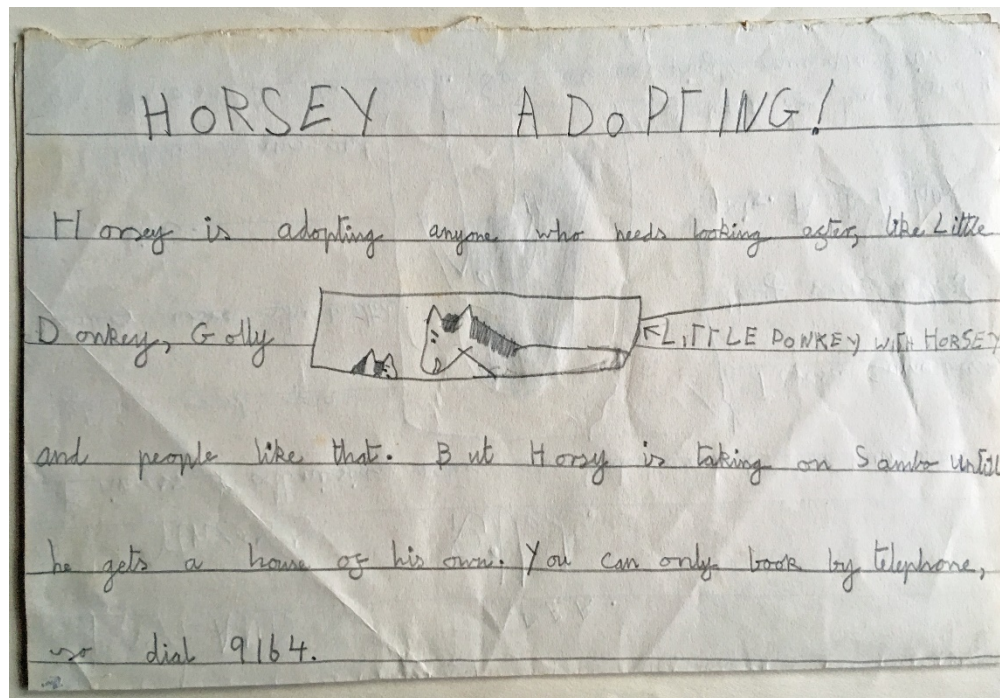 HORSEY ADOPTING!
Horsey is adopting anyone who needs looking after, like Little
Donkey, Golly
←LITTLE DONKEY WITH HORSEY
and people like that. But Horsy is taking on Sambo untill
he gets a house of his own. You can only book by telephone,
so dial 9164.